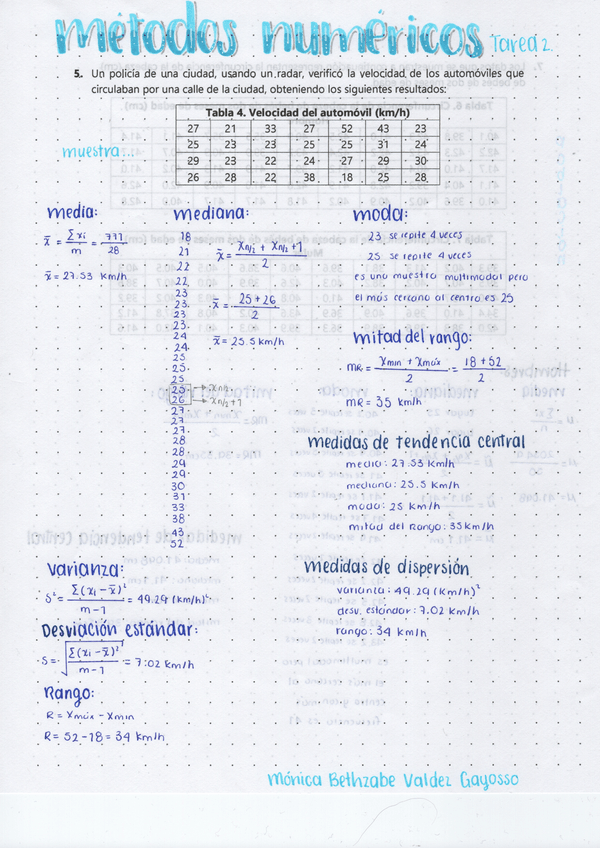 métodos numéricos Tarea 2.
5. Un policía de una ciudad, usando un radar, verificó la velocidad de los automóviles que
circulaban por una calle de la ciudad, obteniendo los siguientes resultados:
Tabla 4. Velocidad del automóvil (km/h)
27 21 33 27 52 43 23
25 23 23 25 25 31 24
29 23 22 24 27 29 30
26 28 22 38 18 25 28
muestra...
media:
x̄ = Σxi / m = 771 / 28
x̄ = 27.53 km/h
mediana:
18
21
22
22
23
23
23
23
24
24
25
25
25
25 → x n/2
26 → x n/2 + 1
27
27
27
28
28
29
29
30
31
33
38
43
52
x̃ = x n/2 + x n/2 +1 / 2
x̃ = 25 + 26 / 2
x̃ = 25.5 km/h
moda:
23 se repite 4 veces
25 se repite 4 veces
es una muestra multimodal pero
el más cercano al centro es 25
mitad del rango:
MR = xmin + xmáx / 2 = 18 + 52 / 2
MR = 35 km/h
medidas de tendencia central
media: 27.53 km/h
mediana: 25.5 km/h
moda: 25 km/h
mitad del rango: 35 km/h
varianza:
s² = Σ(xi - x̄)² / m-1 = 49.29 (km/h)²
Desviación estándar:
s = √ Σ(xi - x̄)² / m-1 = 7.02 km/h
Rango:
R = xmáx - xmin
R = 52 - 18 = 34 km/h
medidas de dispersión
varianza: 49.29 (km/h)²
desv. estándar: 7.02 km/h
rango: 34 km/h
Mónica Bethzabe Valdez Gayosso